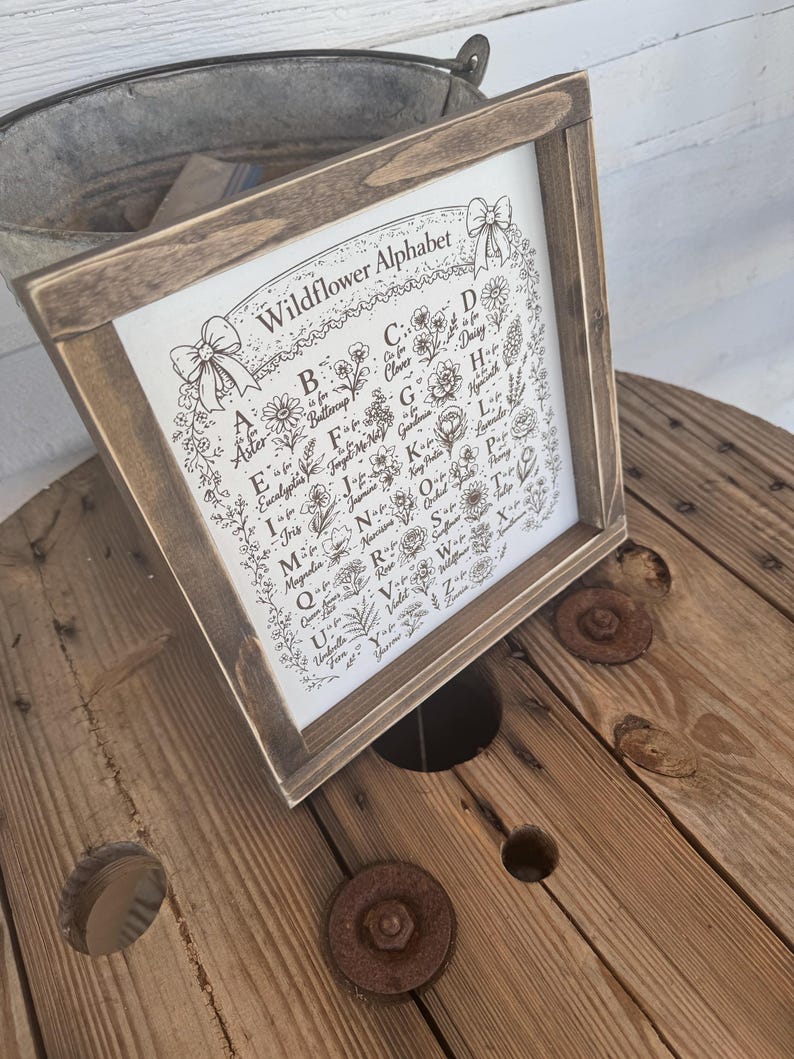 Wildflower Alphabet
A is for Aster
B is for Buttercup
C C is for Clover
D is for Daisy
E is for Eucalyptus
F is for Forget-Me-Not
G is for Gardenia
H is for Hyacinth
I is for Iris
J is for Jasmine
K is for King Protea
L is for Lavender
M is for Magnolia
N is for Narcissus
O is for Orchid
P is for Peony
Q is for Queen Anne's
R is for Rose
S is for Sunflower
T is for Tulip
U is for Umbrella Fern
V is for Violet
W is for Wildflower
X is for
Y is for Yarrow
Z is for Zinnia